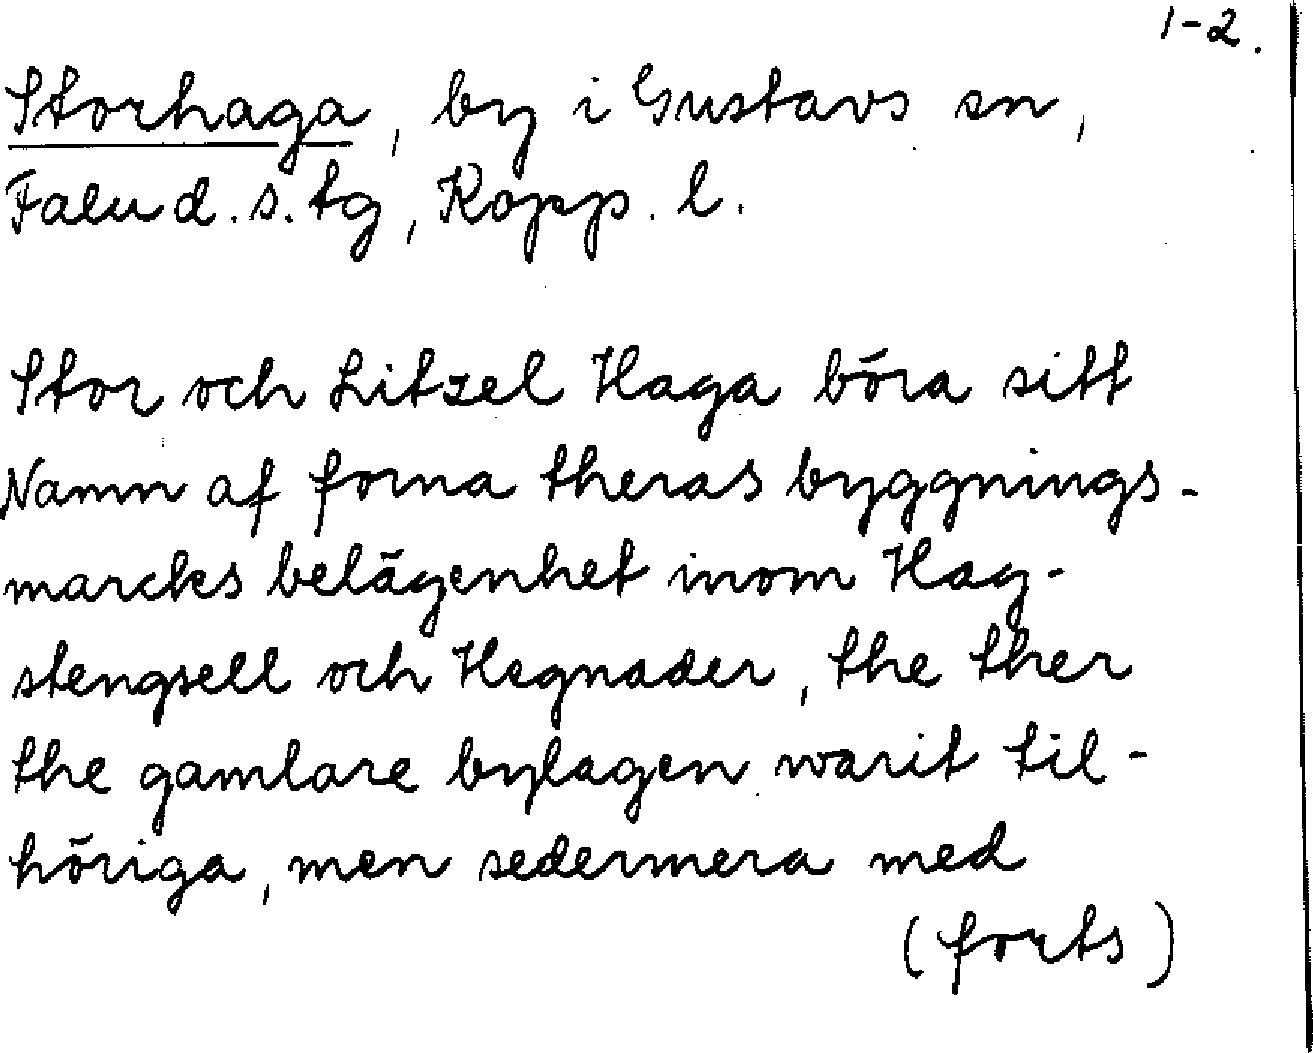 1-2.
Storhaga, by i Gustavs sn,
Falu d. s. tg, Kopp. l.
Stor och Litzel Haga böra sitt
Namn af forna theras byggnings-
marcks belägenhet inom Hag-
stengsell och Hegnader, the ther
the gamlare bylagen warit til-
höriga, men sedermera med
(forts)